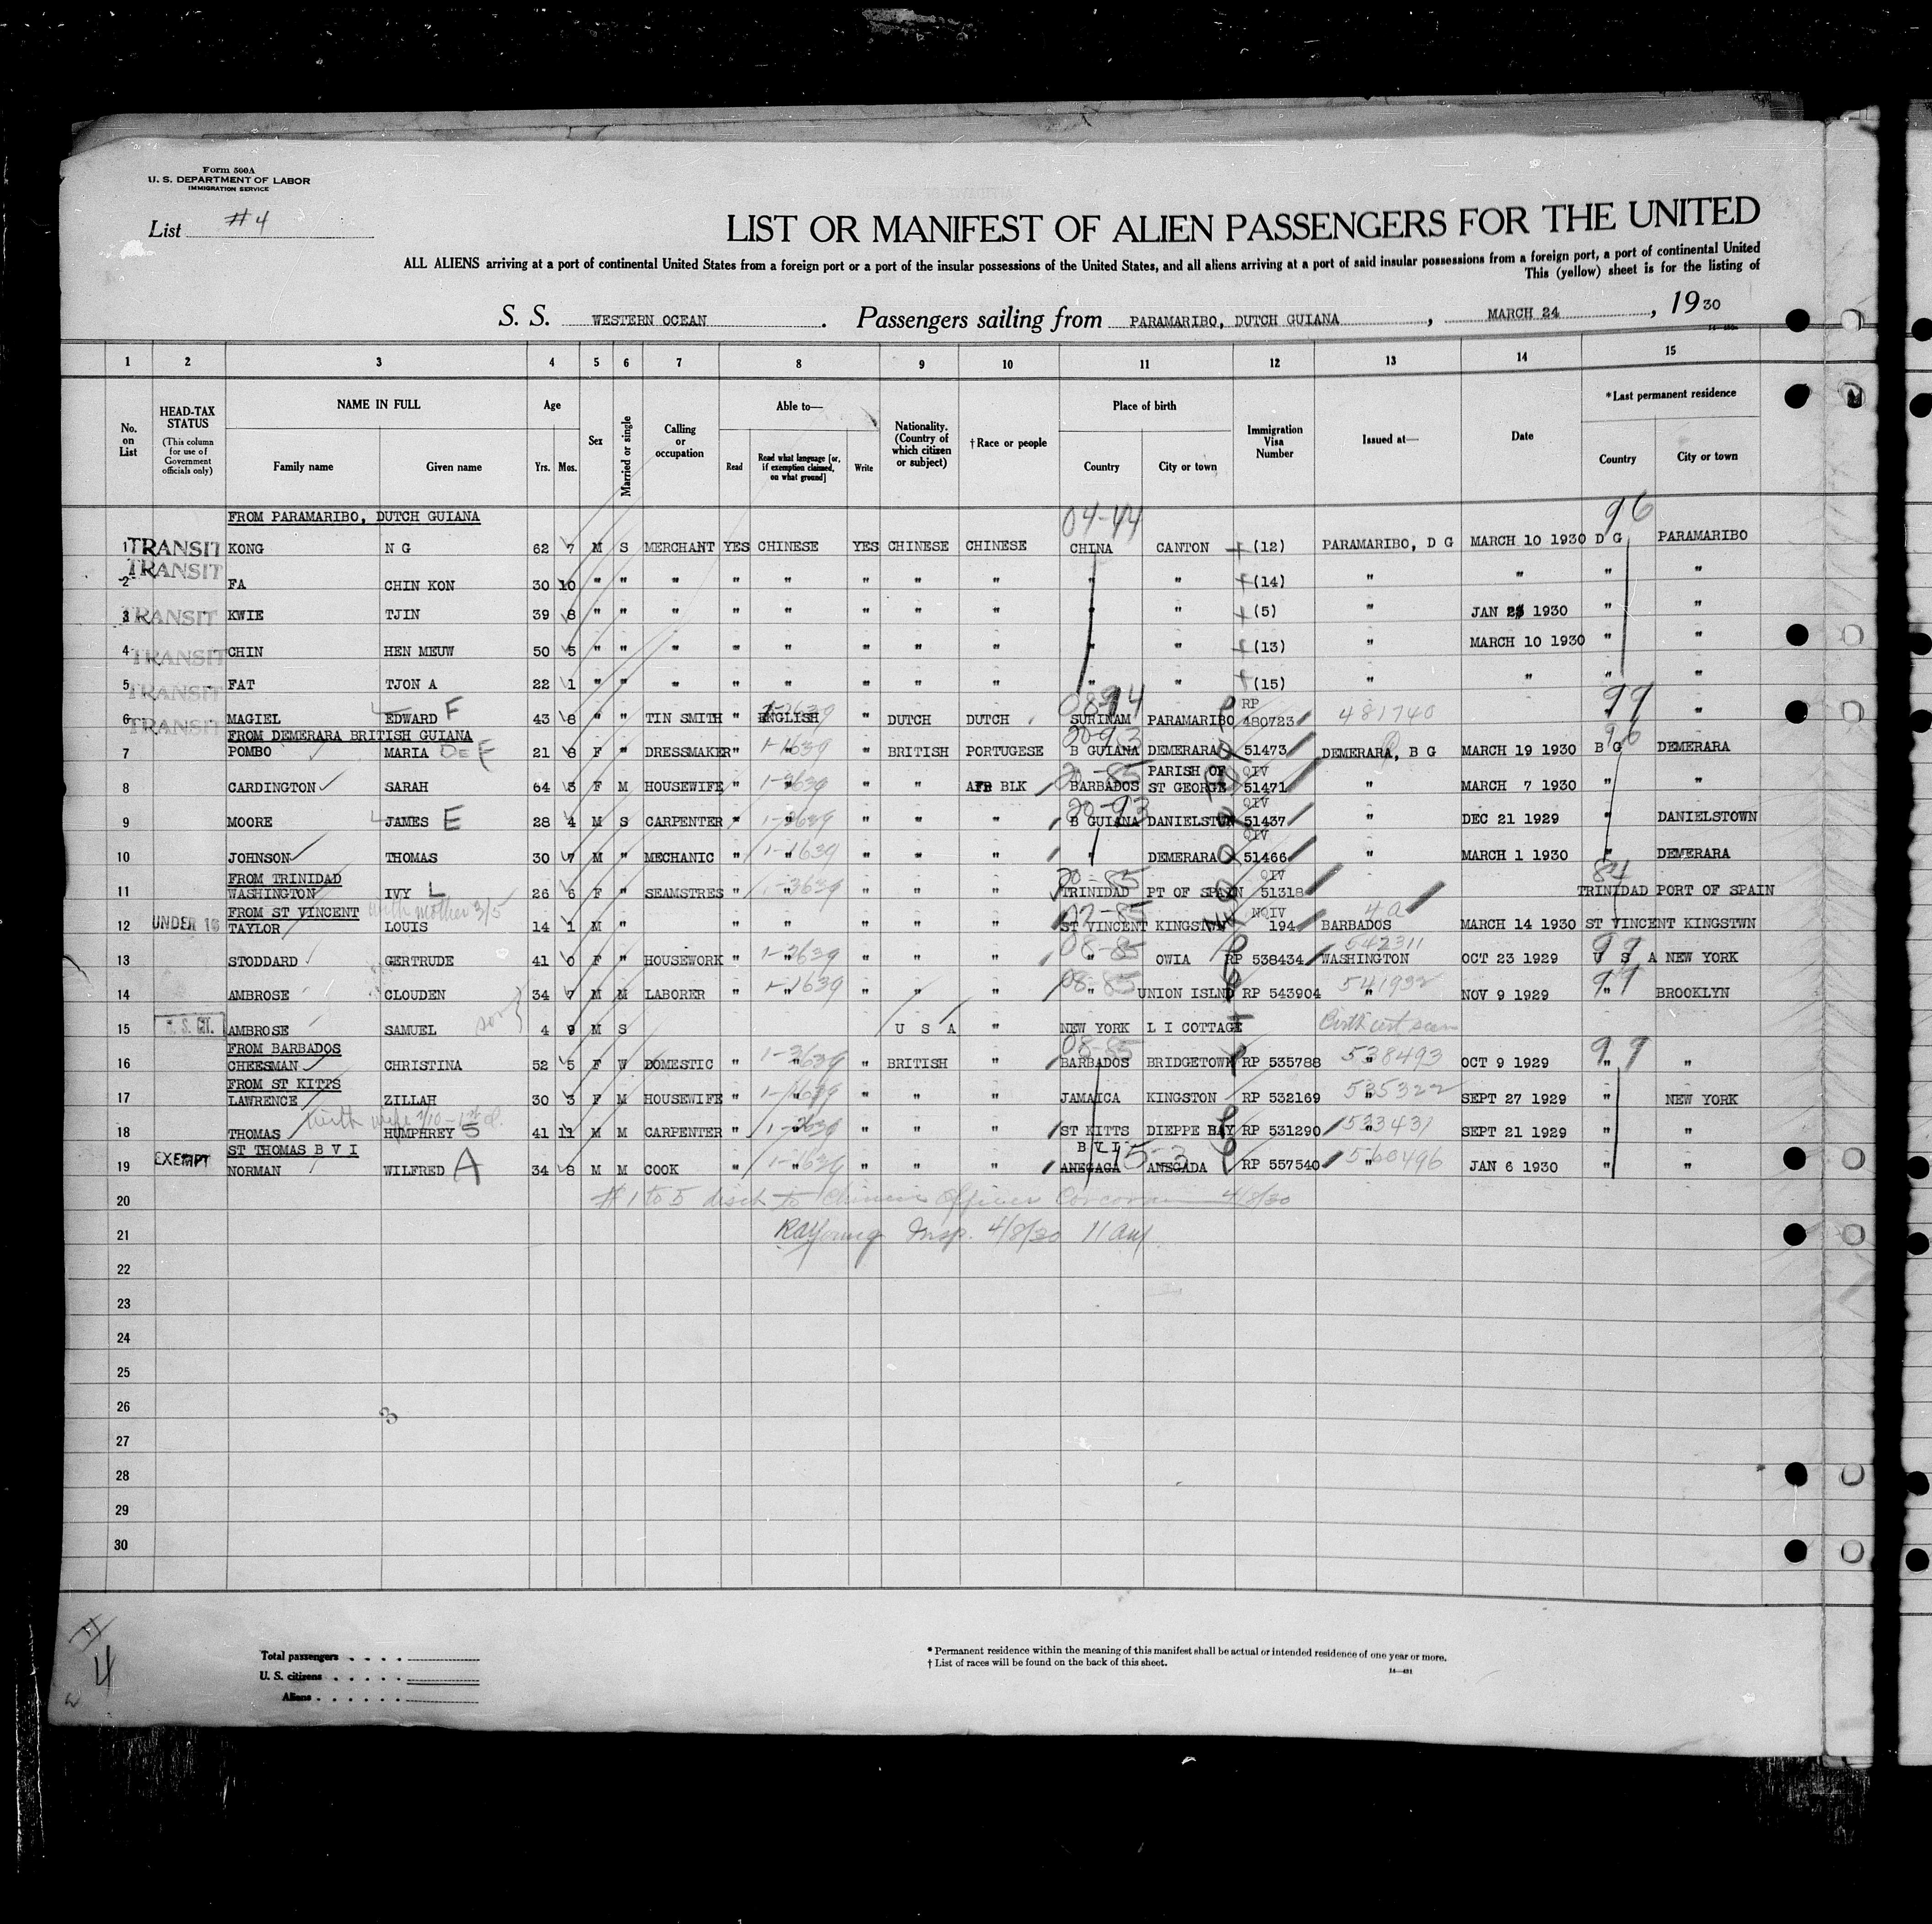 Form 500A
U. S. DEPARTMENT OF LABOR
IMMIGRATION SERVICE
List #4
LIST OR MANIFEST OF ALIEN PASSENGERS FOR THE UNITED
ALL ALIENS arriving at a port of continental United States from a foreign port or a port of the insular possessions of the United States, and all aliens arriving at a port of said insular possessions from a foreign port, a port of continental United
This (yellow) sheet is for the listing of
S. S. WESTERN OCEAN. Passengers sailing from PARAMARIBO, DUTCH GUIANA, MARCH 24, 1930
1 2 3 4 5 6 7 8 9 10 11 12 13 14 15
No. on List
HEAD-TAX STATUS (This column for use of Government officials only)
NAME IN FULL Family name Given name
Age Yrs. Mos.
Sex
Married or single
Calling or occupation
Able to— Read Read what language [or, if exemption claimed, on what ground] Write
Nationality. (Country of which citizen or subject)
† Race or people
Place of birth Country City or town
Immigration Visa Number
Issued at—
Date
* Last permanent residence Country City or town
FROM PARAMARIBO, DUTCH GUIANA 04-44 96
1 TRANSIT KONG N G 62 7 M S MERCHANT YES CHINESE YES CHINESE CHINESE CHINA CANTON (12) PARAMARIBO, D G MARCH 10 1930 D G PARAMARIBO
2 TRANSIT FA CHIN KON 30 10 " " " " " " " " " " (14) " " " "
3 TRANSIT KWIE TJIN 39 8 " " " " " " " " " " (5) " JAN 1930 " "
4 TRANSIT CHIN HEN MEUW 50 5 " " " " " " " " " " (13) " MARCH 10 1930 " "
5 TRANSIT FAT TJON A 22 1 " " " " " " " " " " (15) " " " "
6 TRANSIT MAGIEL EDWARD F 43 8 " " TIN SMITH " ENGLISH " DUTCH DUTCH SURINAM PARAMARIBO RP 480723 481740 99 " "
FROM DEMERARA BRITISH GUIANA
7 POMBO MARIA DE F 21 8 F " DRESSMAKER " " 1-1639 " BRITISH PORTUGESE 20-93 B GUIANA DEMERARA 51473 DEMERARA, B G MARCH 19 1930 96 B G DEMERARA
8 CARDINGTON SARAH 64 3 F M HOUSEWIFE " " 1-3639 " " AFR BLK 20-85 BARBADOS PARISH OF ST GEORGE QIV 51471 " MARCH 7 1930 " "
9 MOORE JAMES E 28 4 M S CARPENTER " " 1-3639 " " " 20-93 B GUIANA DANIELSTWN QIV 51437 " DEC 21 1929 " DANIELSTOWN
10 JOHNSON THOMAS 30 7 M " MECHANIC " " 1-1639 " " " " DEMERARA QIV 51466 " MARCH 1 1930 " DEMERARA
FROM TRINIDAD
11 WASHINGTON IVY L 26 6 F " SEAMSTRES " " 1-3639 " " " 20-85 TRINIDAD PT OF SPAIN QIV 51318 84 TRINIDAD PORT OF SPAIN
FROM ST VINCENT with mother 3/5
12 UNDER 16 TAYLOR LOUIS 14 1 M " " " " " " 02-85 ST VINCENT KINGSTWN NQIV 194 4a BARBADOS MARCH 14 1930 ST VINCENT KINGSTWN
13 STODDARD GERTRUDE 41 0 F " HOUSEWORK " " 1-3639 " " " 08-85 " OWIA RP 538434 542311 WASHINGTON OCT 23 1929 99 U S A NEW YORK
14 AMBROSE CLOUDEN 34 7 M M LABORER " " 1-1639 " " " 08-85 " UNION ISLND RP 543904 541932 " NOV 9 1929 99 " BROOKLYN
15 U. S. CIT. AMBROSE SAMUEL son 4 9 M S U S A " NEW YORK L I COTTAGE Birth cert seen
FROM BARBADOS
16 CHEESMAN CHRISTINA 52 5 F W DOMESTIC " " 1-3639 " BRITISH " 08-85 BARBADOS BRIDGETOWN RP 535788 538493 " OCT 9 1929 99 " "
FROM ST KITTS
17 LAWRENCE ZILLAH 30 3 F M HOUSEWIFE " " 1-1639 " " " JAMAICA KINGSTON RP 532169 535322 " SEPT 27 1929 " NEW YORK
18 THOMAS HUMPHREY S 41 11 M M CARPENTER " " 1-3639 " " " ST KITTS DIEPPE BAY RP 531290 533431 " SEPT 21 1929 " "
ST THOMAS B V I
19 EXEMPT NORMAN WILFRED A 34 8 M M COOK " " 1-1639 " " " B V I ANEGAGA ANEGADA RP 557540 560496 " JAN 6 1930 " "
20 #1 to 5 disch to Chinese Officer Corcoran 4/8/30
21 RAYoung Insp. 4/8/30 11 am
22
23
24
25
26
27
28
29
30
Total passengers
U. S. citizens
Aliens
* Permanent residence within the meaning of this manifest shall be actual or intended residence of one year or more.
† List of races will be found on the back of this sheet.
14—431
4